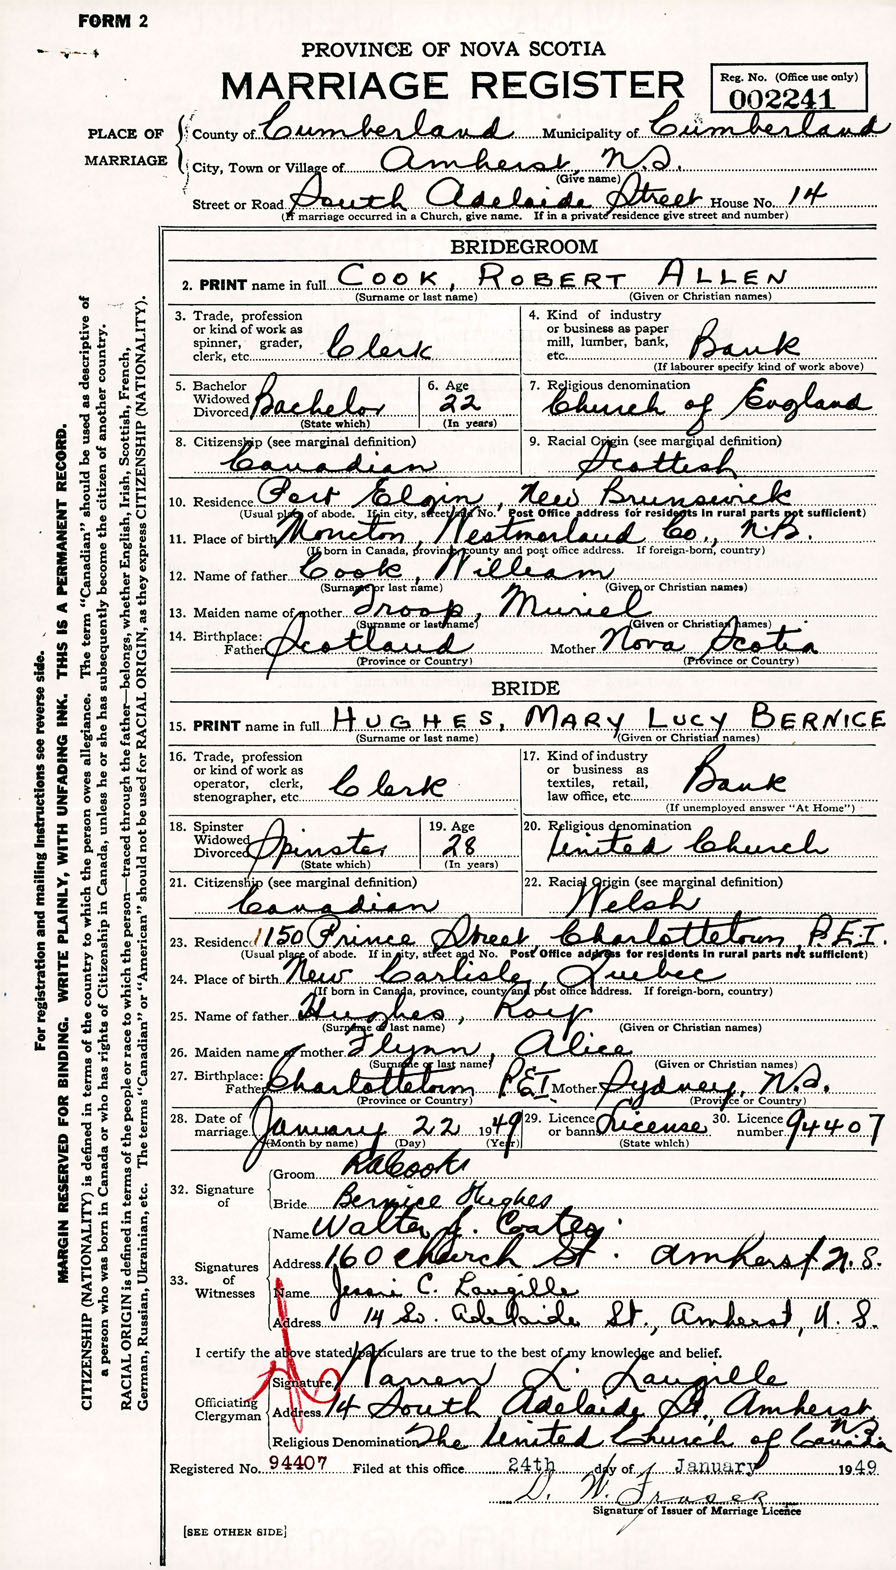 FORM 2
PROVINCE OF NOVA SCOTIA
MARRIAGE REGISTER
Reg. No. (Office use only)
002241
PLACE OF MARRIAGE
County of Cumberland Municipality of Cumberland
City, Town or Village of Amherst, N.S.
(Give name)
Street or Road South Adelaide Street House No. 14
(If marriage occurred in a Church, give name. If in a private residence give street and number)
BRIDEGROOM
2. PRINT name in full COOK, ROBERT ALLEN
(Surname or last name) (Given or Christian names)
3. Trade, profession or kind of work as spinner, grader, clerk, etc. Clerk
4. Kind of industry or business as paper mill, lumber, bank, etc. Bank
(If labourer specify kind of work above)
5. Bachelor Widowed Divorced Bachelor
(State which)
6. Age 22
(In years)
7. Religious denomination
Church of England
8. Citizenship (see marginal definition)
Canadian
9. Racial Origin (see marginal definition)
Scottish
10. Residence Port Elgin, New Brunswick
(Usual place of abode. If in city, street and No. Post Office address for residents in rural parts not sufficient)
11. Place of birth Moncton, Westmorland Co., N.B.
(If born in Canada, province, county and post office address. If foreign-born, country)
12. Name of father Cook, William
(Surname or last name) (Given or Christian names)
13. Maiden name of mother Troop, Muriel
(Surname or last name) (Given or Christian names)
14. Birthplace: Father Scotland Mother Nova Scotia
(Province or Country) (Province or Country)
BRIDE
15. PRINT name in full HUGHES, MARY LUCY BERNICE
(Surname or last name) (Given or Christian names)
16. Trade, profession or kind of work as operator, clerk, stenographer, etc. Clerk
17. Kind of industry or business as textiles, retail, law office, etc. Bank
(If unemployed answer "At Home")
18. Spinster Widowed Divorced Spinster
(State which)
19. Age 28
(In years)
20. Religious denomination
United Church
21. Citizenship (see marginal definition)
Canadian
22. Racial Origin (see marginal definition)
Welsh
23. Residence 150 Prince Street, Charlottetown, P.E.I.
(Usual place of abode. If in city, street and No. Post Office address for residents in rural parts not sufficient)
24. Place of birth New Carlisle, Quebec
(If born in Canada, province, county and post office address. If foreign-born, country)
25. Name of father Hughes, Roy
(Surname or last name) (Given or Christian names)
26. Maiden name of mother Flynn, Alice
(Surname or last name) (Given or Christian names)
27. Birthplace: Father Charlottetown P.E.I. Mother Sydney, N.S.
(Province or Country) (Province or Country)
28. Date of marriage January 22 1949
(Month by name) (Day) (Year)
29. Licence or banns License
(State which)
30. Licence number 94407
32. Signature of
Groom RACook
Bride Bernice Hughes
33. Signatures of Witnesses
Name Walter J. Coates
Address 160 Church St. Amherst N.S.
Name Jessie C. Langille
Address 14 So. Adelaide St., Amherst, N.S.
I certify the above stated particulars are true to the best of my knowledge and belief.
Officiating Clergyman
Signature Warren L. Langille
Address 14 South Adelaide St, Amherst N.S.
Religious Denomination The United Church of Canada
Registered No. 94407 Filed at this office 24th day of January 1949
D. W. Fraser
Signature of Issuer of Marriage Licence
[SEE OTHER SIDE]
For registration and mailing Instructions see reverse side.
MARGIN RESERVED FOR BINDING. WRITE PLAINLY, WITH UNFADING INK. THIS IS A PERMANENT RECORD.
CITIZENSHIP (NATIONALITY) is defined in terms of the country to which the person owes allegiance. The term "Canadian" should be used as descriptive of
a person who was born in Canada or who has rights of Citizenship in Canada, unless he or she has subsequently become the citizen of another country.
RACIAL ORIGIN is defined in terms of the people or race to which the person—traced through the father—belongs, whether English, Irish, Scottish, French,
German, Russian, Ukrainian, etc. The terms "Canadian" or "American" should not be used for RACIAL ORIGIN, as they express CITIZENSHIP (NATIONALITY).